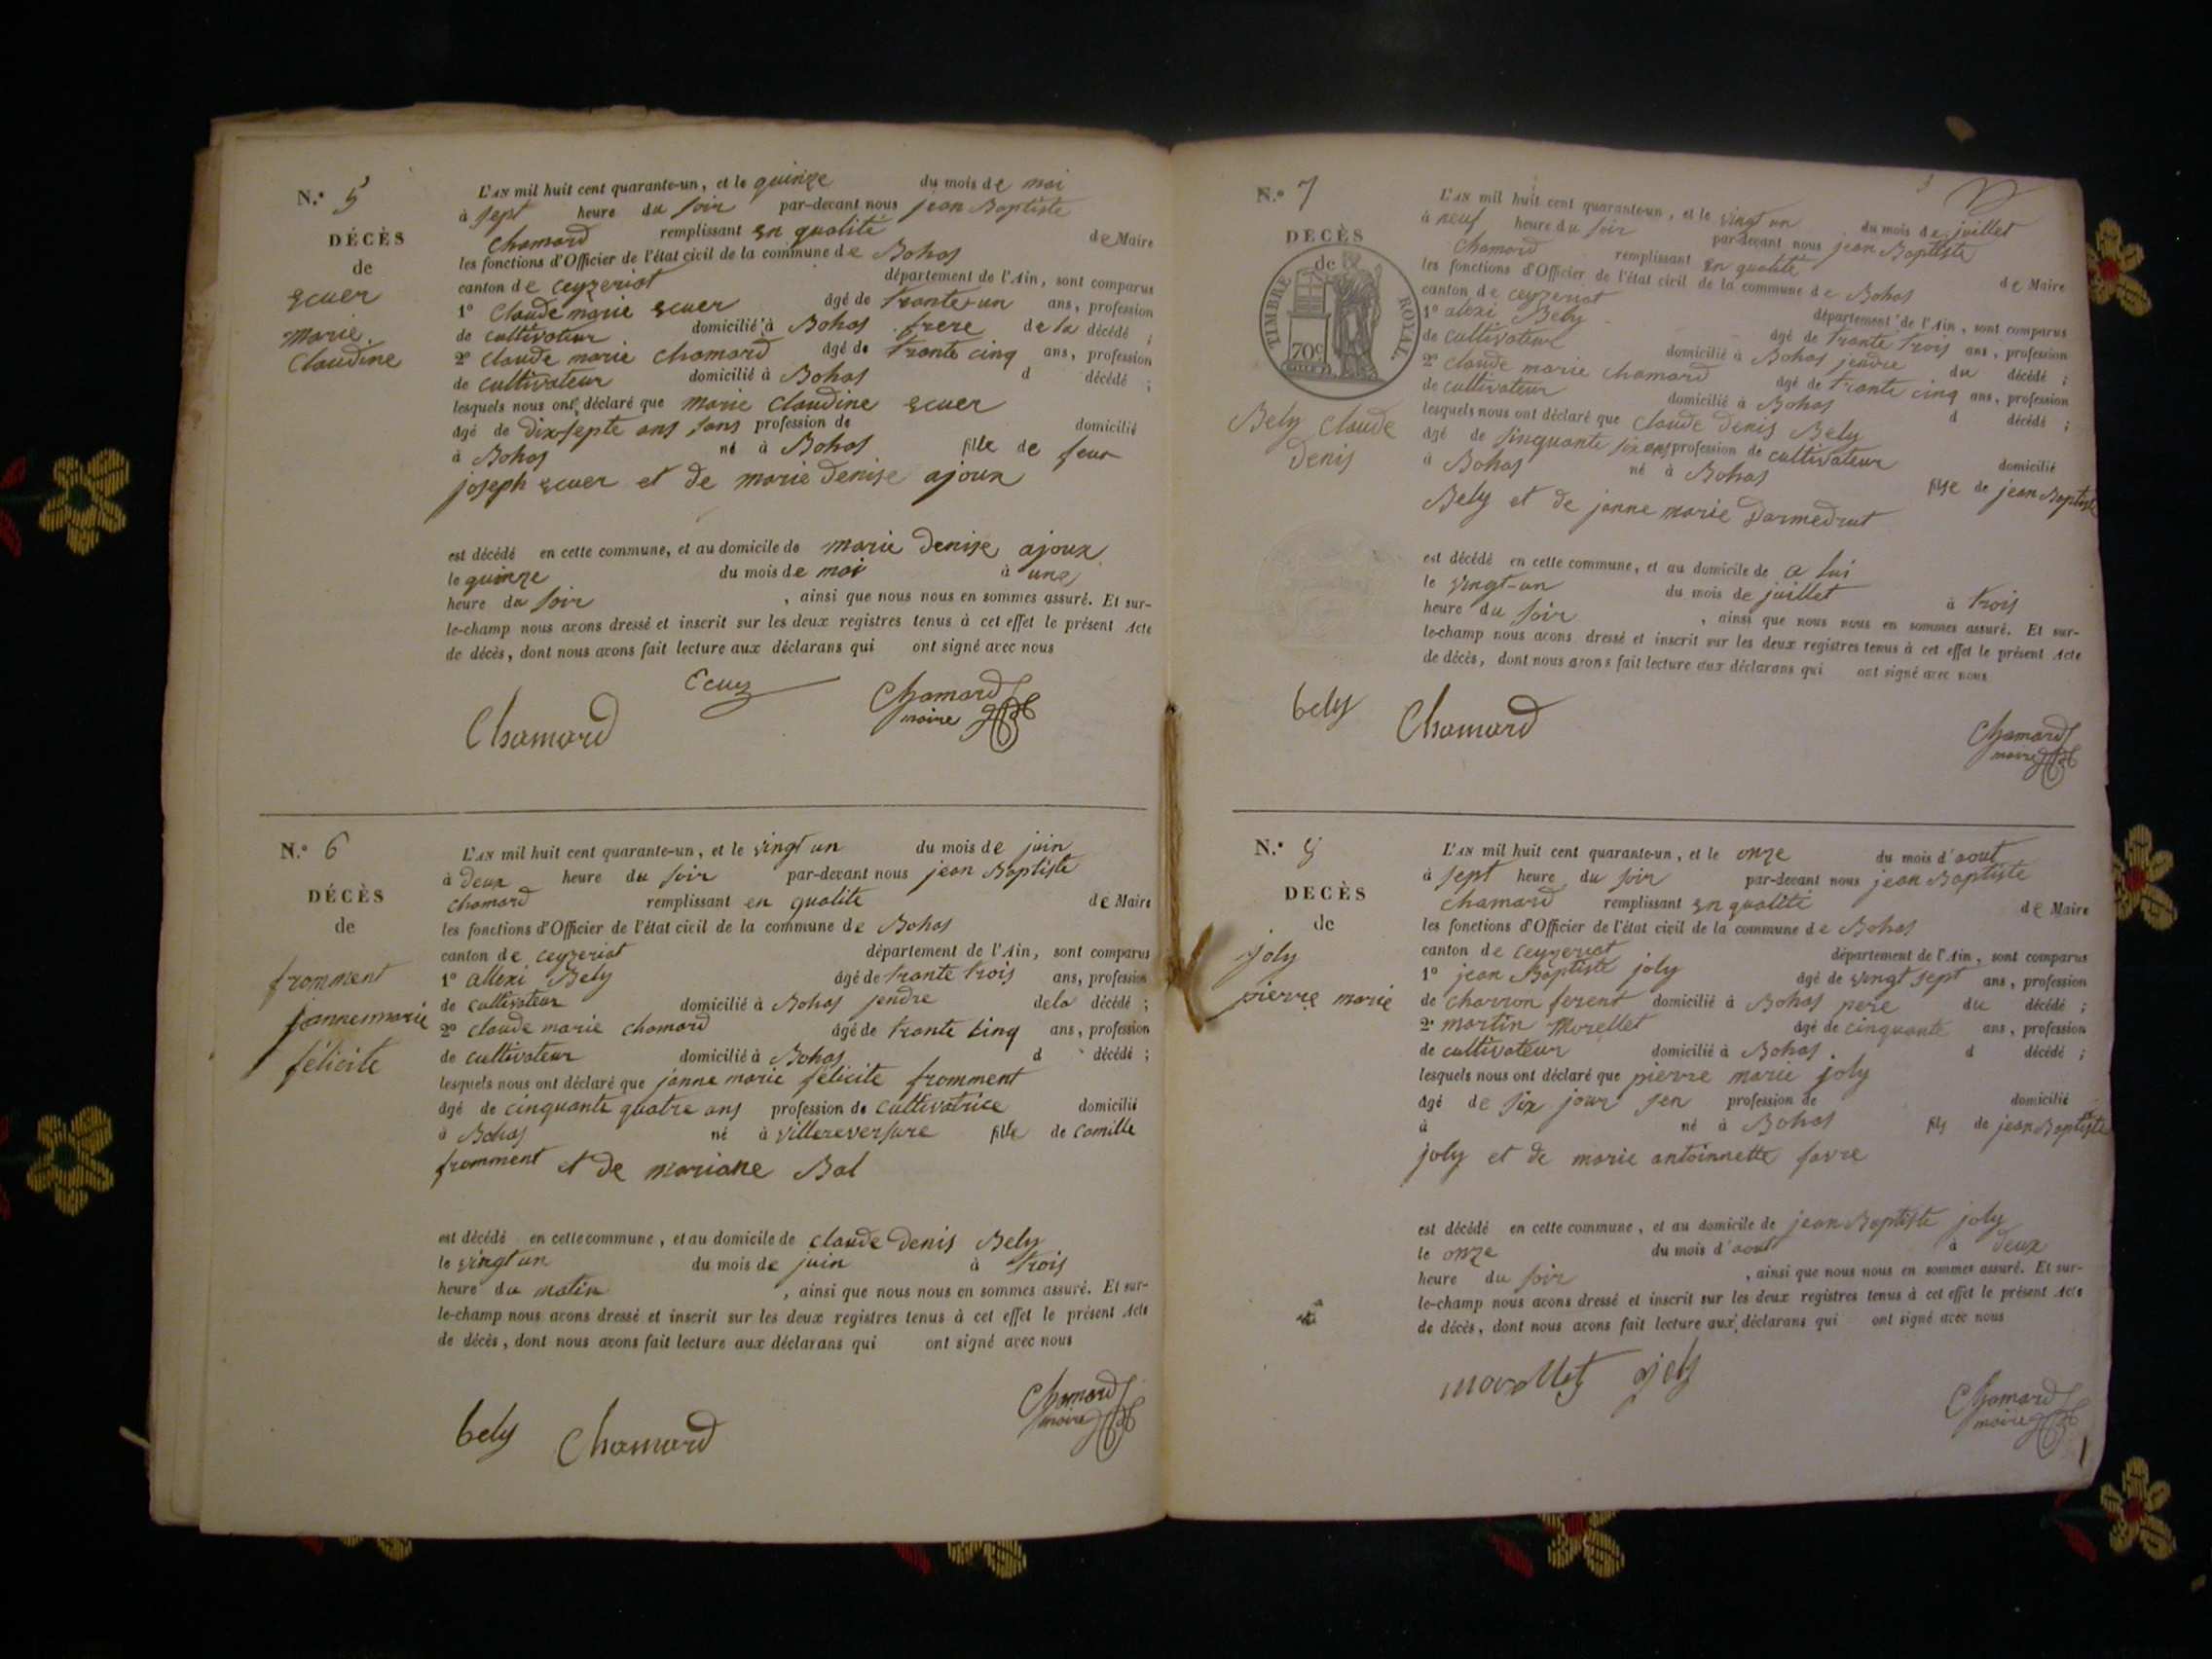 N.° 5
DÉCÈS
de
ecuer
marie
Claudine
L'AN mil huit cent quarante-un, et le quinze du mois de mai
à sept heure du soir par-devant nous jean Baptiste
Chamard remplissant en qualité de Maire
les fonctions d'Officier de l'état civil de la commune de Bohas
canton de ceyzeriat département de l'Ain, sont comparus
1° Claude marie ecuer âgé de trante-un ans, profession
de cultivateur domicilié à Bohas frere de la décédé ;
2° Claude marie chamard âgé de trante cinq ans, profession
de cultivateur domicilié à Bohas d décédé ;
lesquels nous ont déclaré que marie Claudine ecuer
âgé de dix-septe ans sans profession de domicilié
à Bohas né à Bohas fille de feux
joseph ecuer et de marie denise ajoux
est décédé en cette commune, et au domicile de marie denise ajoux
le quinze du mois de mai à une
heure du soir , ainsi que nous nous en sommes assuré. Et sur-
le-champ nous avons dressé et inscrit sur les deux registres tenus à cet effet le présent Acte
de décès, dont nous avons fait lecture aux déclarans qui ont signé avec nous
Ecuez
Chamard
Chamard
maire
N.° 6
DÉCÈS
de
fromment
jannemarie
félicité
L'AN mil huit cent quarante-un, et le vingt un du mois de juin
à deux heure du soir par-devant nous jean Baptiste
chamard remplissant en qualité de Maire
les fonctions d'Officier de l'état civil de la commune de Bohas
canton de ceyzeriat département de l'Ain, sont comparus
1° allexi Bely âgé de trante trois ans, profession
de cultivateur domicilié à Bohas jendre dela décédé ;
2° claude marie chamard âgé de trante cinq ans, profession
de cultivateur domicilié à Bohas d décédé ;
lesquels nous ont déclaré que janne marie félicité fromment
âgé de cinquante quatre ans profession de cultivatrice domicilié
à Bohas né à villereversure fille de Camille
fromment et de mariane Bal
est décédé en cette commune, et au domicile de claude denis Bely
le vingt un du mois de juin à trois
heure du matin , ainsi que nous nous en sommes assuré. Et sur-
le-champ nous avons dressé et inscrit sur les deux registres tenus à cet effet le présent Acte
de décès, dont nous avons fait lecture aux déclarans qui ont signé avec nous
bely Chamard
Chamard
maire
N.° 7
DÉCÈS
de
TIMBRE ROYAL.
70c
Bely Claude
Denis
L'AN mil huit cent quarante-un, et le vingt un du mois de juillet
à neuf heure du soir par-devant nous jean Baptiste
Chamard remplissant en qualité de Maire
les fonctions d'Officier de l'état civil de la commune de Bohas
canton de ceyzeriat département de l'Ain, sont comparus
1° alexi Bely âgé de trante trois ans, profession
de cultivateur domicilié à Bohas jendre du décédé ;
2° claude marie chamard âgé de trante cinq ans, profession
de cultivateur domicilié à Bohas d décédé ;
lesquels nous ont déclaré que Claude denis Bely
âgé de sinquante six ans profession de cultivateur domicilié
à Bohas né à Bohas fils de jean Baptiste
Bely et de janne marie Darmedrut
est décédé en cette commune, et au domicile de a lui
le vingt-un du mois de juillet à trois
heure du soir , ainsi que nous nous en sommes assuré. Et sur-
le-champ nous avons dressé et inscrit sur les deux registres tenus à cet effet le présent Acte
de décès, dont nous avons fait lecture aux déclarans qui ont signé avec nous
bely Chamard
Chamard
maire
N.°
DÉCÈS
de
joly
pierre marie
L'AN mil huit cent quarante-un, et le onze du mois d'aout
à sept heure du soir par-devant nous jean Baptiste
chamard remplissant en qualité de Maire
les fonctions d'Officier de l'état civil de la commune de Bohas
canton de ceyzeriat département de l'Ain, sont comparus
1° jean Baptiste joly âgé de vingt sept ans, profession
de charron ferent domicilié à Bohas pere du décédé ;
2° martin Morellet âgé de cinquante ans, profession
de cultivateur domicilié à Bohas d décédé ;
lesquels nous ont déclaré que pierre marie joly
âgé de six jour sen profession de domicilié
à né à Bohas fils de jean Baptiste
joly et de marie antoinnette favre
est décédé en cette commune, et au domicile de jean Baptiste joly
le onze du mois d'aout à deux
heure du soir , ainsi que nous nous en sommes assuré. Et sur-
le-champ nous avons dressé et inscrit sur les deux registres tenus à cet effet le présent Acte
de décès, dont nous avons fait lecture aux déclarans qui ont signé avec nous
morellet
Chamard
maire